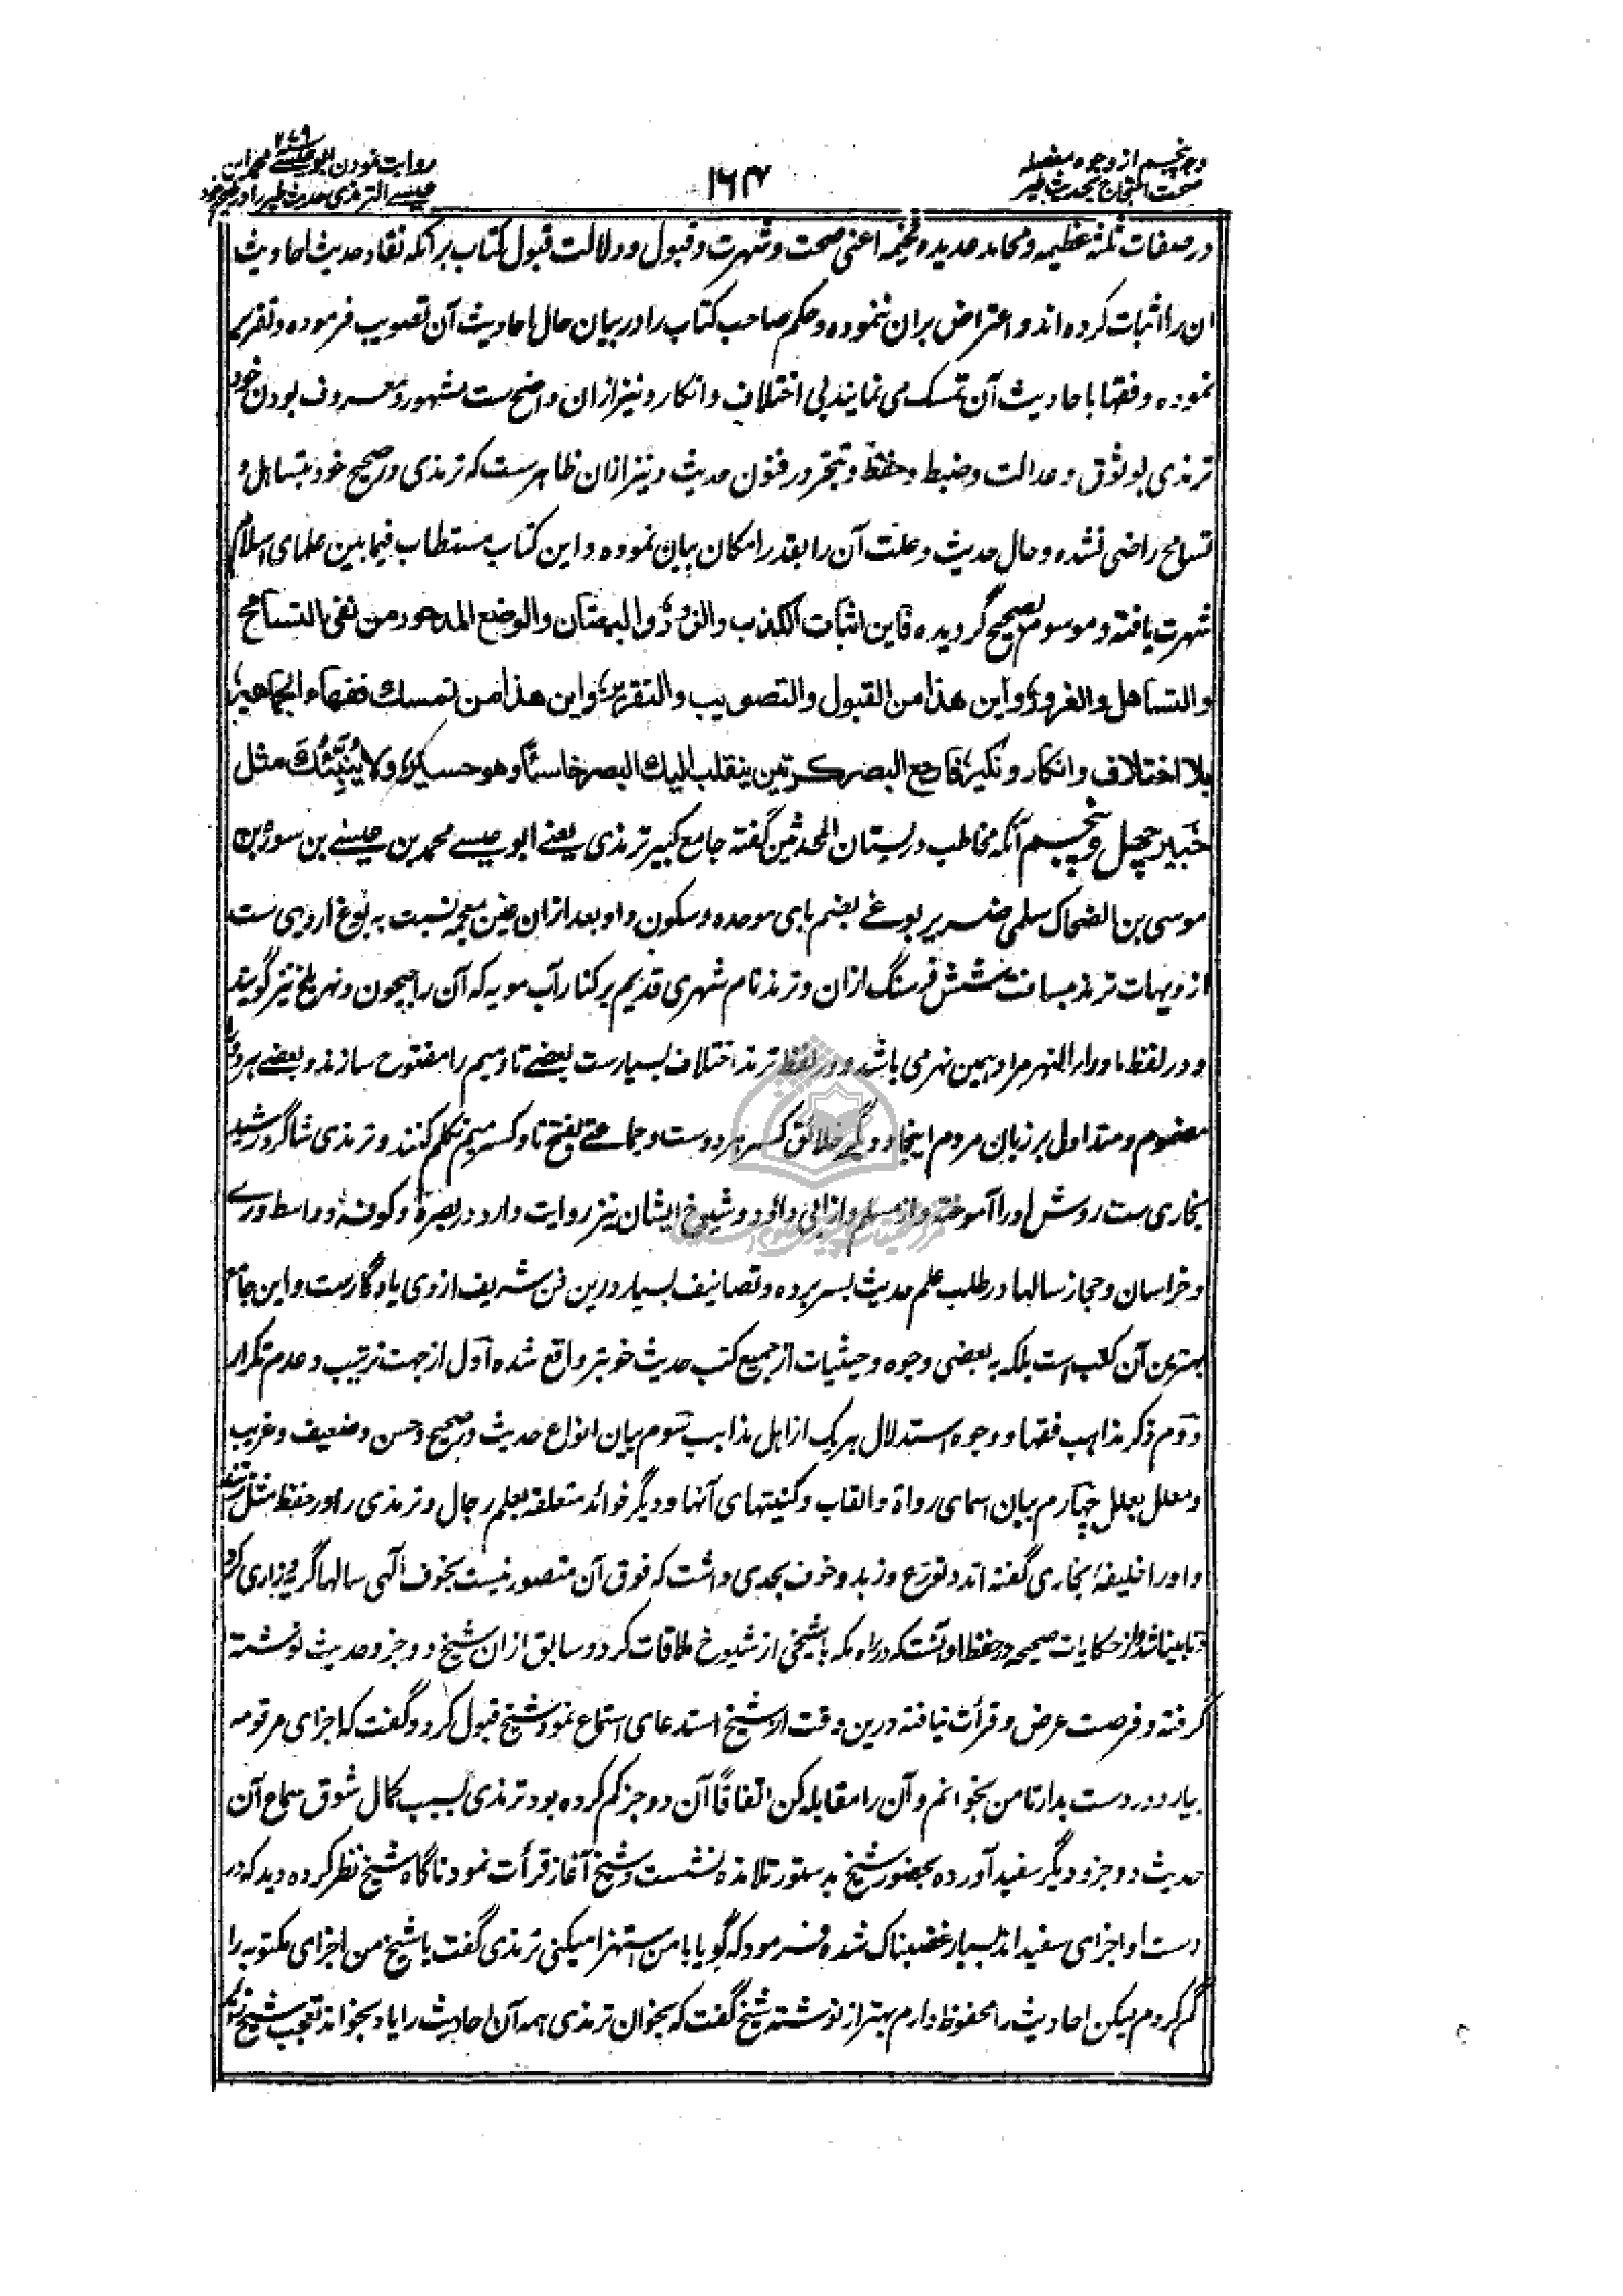 وجه پنجم از وجوه مفصله
صحت احتجاج بحدیث طیر
۱۶۴
۲۷۹
روایت نمودن ابو عیسی محمد ابن
عیسی الترمذی حدیث طیر را در صحیح خود
در صفات ثلثه عظیمه و محامد عدیده فخیمه اعنی صحت و شهرت و قبول و دلالت قبول کتاب بر آنکه نقاد حدیث احادیث
آن را اثبات کرده اند و اعتراض بران ننموده و حکم صاحب کتاب را در بیان حال احادیث آن تصویب فرموده و تقریر
نموده و فقها با حادیث آن تمسک می نمایند بی اختلاف و انکار و نیز ازان واضح ست مشهور و معروف بودن خود
ترمذی بوثوق و عدالت و ضبط و حفظ و تبحر در فنون حدیث و نیز ازان ظاهر ست که ترمذی در صحیح خود بتساهل و
تسامح راضی نشده و حال حدیث و علت آن را بقدر امکان بیان نموده و این کتاب مستطاب فیما بین علمای اسلام
شهرت یافته و موسوم بصحیح گردیده فاین اثبات الکذب والزور والبهتان والوضع المدحور من نفی التسامح
والتساهل والغرور واین هذا من القبول والتصویب والتقریر واین هذا من تمسک فقهاء الجماهیر
بلا اختلاف وانکار ونکیر فارجع البصر کرتین ینقلب الیک البصر خاسئًا وهو حسیر ولا یُنَبِّئُکَ مثل
خبیر چهل و پنجم آنکه مخاطب در بستان المحدثین گفته جامع کبیر ترمذی یعنی ابو عیسے محمد بن عیسے بن سورة بن
موسی بن الضحاک سلمی ضریر بوغے بضم بای موحده و سکون واو بعد ازان غین معجمه نسبت به بوغ اردهی ست
از دیهات ترمذ بمسافت شش فرسنگ ازان و ترمذ نام شهری قدیم بر کنار آب مویه که آن را جیحون و نهر بلخ نیز گویند
و در لفظ ماوراء النهر مراد همین نهر می باشد و در لفظ ترمذ اختلاف بسیارست بعضے تا و میم را مفتوح سازند و بعضے هر دو را
مضموم و متداول بر زبان مردم اینجا و دیگر خلائق کسر هر دوست و جماعتے بفتح تا و کسر میم تکلم کنند و ترمذی شاگرد رشید
بخاری ست روش او را آموخته و از مسلم و از ابی داؤد و شیوخ ایشان نیز روایت دارد در بصره و کوفه و واسط و رے
و خراسان و حجاز سالها در طلب علم حدیث بسر برده و تصانیف بسیار درین فن شریف از وی یادگارست و این جامع
بهترین آن کتب است بلکه به بعضی وجوه و حیثیات از جمیع کتب حدیث خوبتر واقع شده اول از جهت ترتیب و عدم تکرار
دوم ذکر مذاهب فقها و وجوه استدلال هر یک از اهل مذاهب سوم بیان انواع حدیث از صحیح و حسن و ضعیف و غریب
و معلل بعلل چهارم بیان اسمای رواة و القاب و کنیتهای آنها و دیگر فوائد متعلقه بعلم رجال و ترمذی را در حفظ مثل
و او را خلیفهٔ بخاری گفته اند و تورع و زهد و خوف بحدی داشت که فوق آن متصور نیست بخوف الهی سالها گریه و زاری کرد
و نابینا شد و از حکایات صحیحه در حفظ او آنست که در راه مکه با شیخی از شیوخ ملاقات کرد و سابق ازان شیخ دو جزو حدیث نوشته
گرفته و فرصت عرض و قرأت نیافته درین وقت از شیخ استدعای استماع نمود شیخ قبول کرد و گفت که اجزای مرقومه
بیار و در دست بدار تا من بخوانم و آن را مقابله کن اتفاقًا آن دو جز گم کرده بود ترمذی بسبب کمال شوق سماع آن
حدیث دو جزو دیگر سفید آورده بحضور شیخ بدستور تلامذه نشست و شیخ آغاز قرأت نمود ناگاه شیخ نظر کرده دید که در
دست او اجزای سفید اند بسیار غضبناک شده فرمود که گویا با من استهزا میکنی ترمذی گفت یا شیخ من اجزای مکتوبه را
گم کردم لیکن احادیث را محفوظ دارم بهتر از نوشته شیخ گفت که بخوان ترمذی همه آن احادیث را یاد بخواند تعجب شیخ